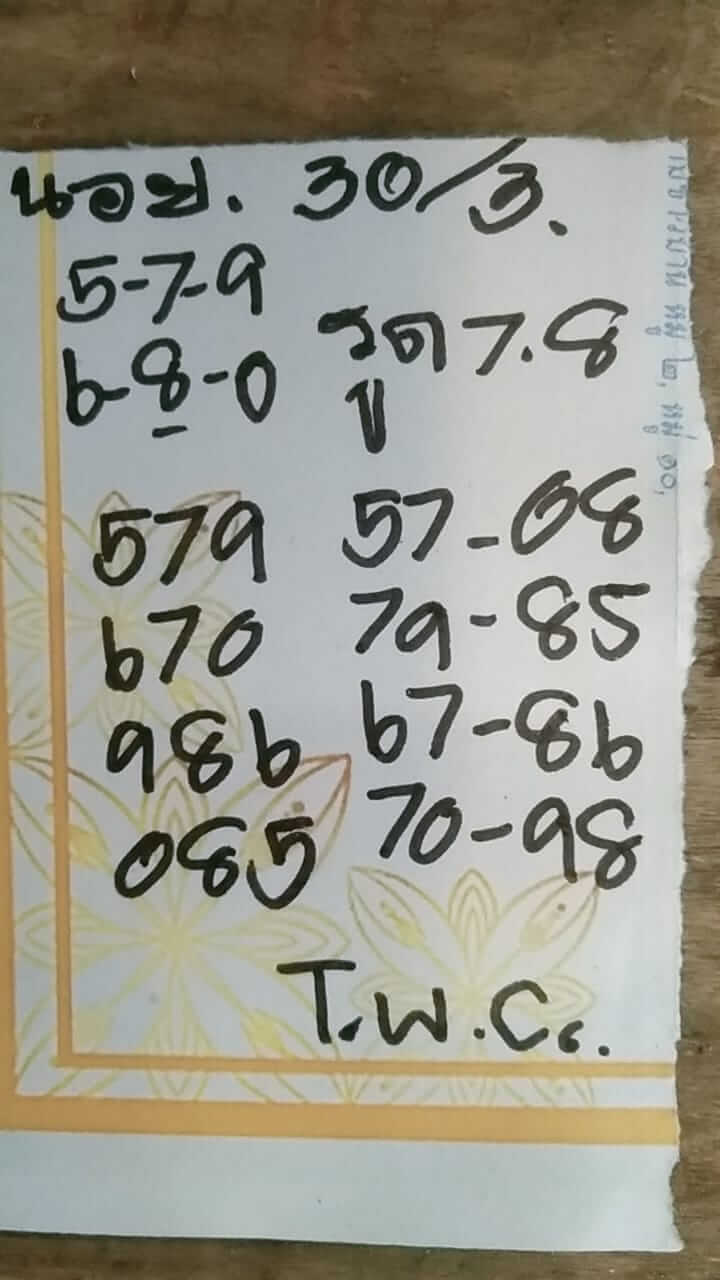 นอย. 30/3.
5-7-9
6-8-0 รูด 7.8
579 57-08
670 79-85
986 67-86
085 70-98
T.W.C..